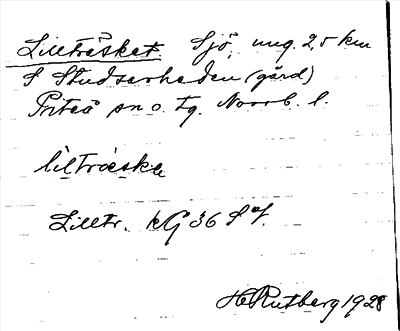 Lillträsket. Sjö, ung. 2,5 km
S Studsarheden (gård)
Piteå sn o. tg. Norrb. l.
lìltræska
Lilltr. kG 36 S V.
H Rutberg 1928